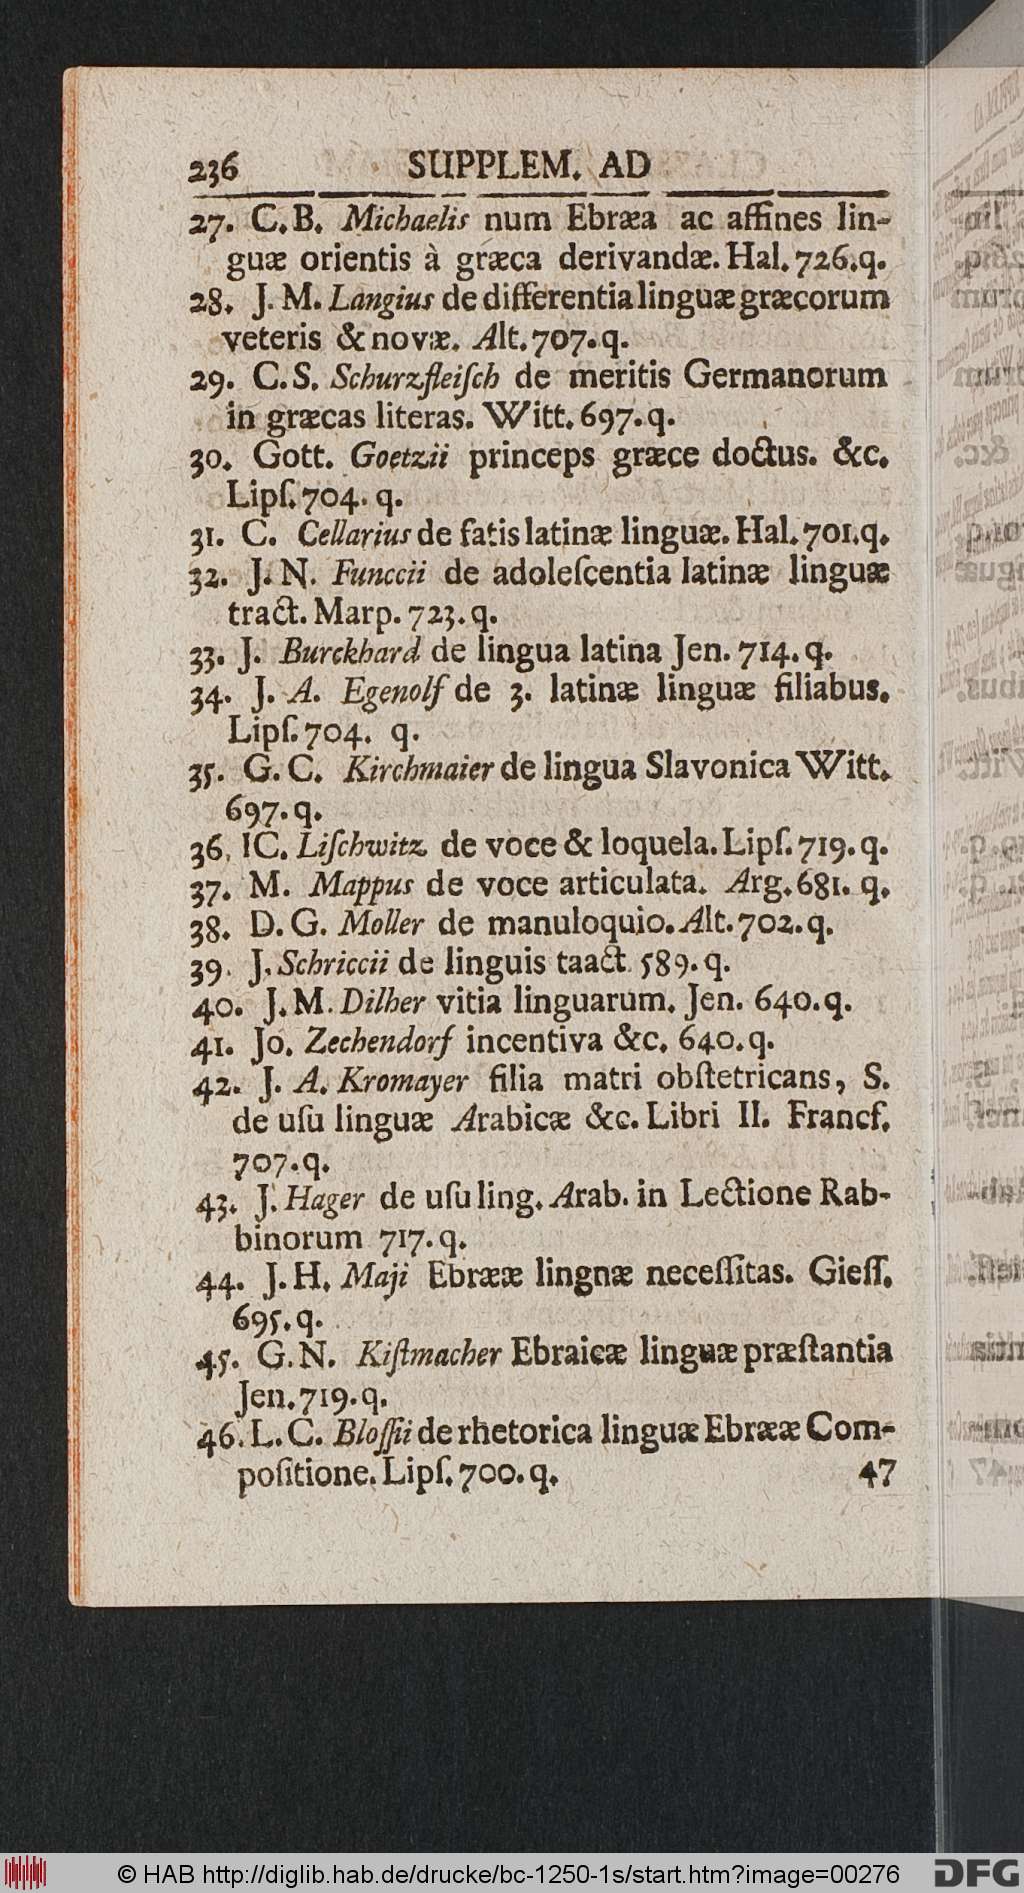 236 SUPPLEM. AD
27. C. B. Michaelis num Ebræa ac affines lin-
guæ orientis à græca derivandæ. Hal. 726. q.
28. J. M. Langius de differentia linguæ græcorum
veteris & novæ. Alt. 707. q.
29. C. S. Schurzfleiſch de meritis Germanorum
in græcas literas. Witt. 697. q.
30. Gott. Goetzii princeps græce doctus. &c.
Lipſ. 704. q.
31. C. Cellarius de fatis latinæ linguæ. Hal. 701. q.
32. J. N. Funccii de adoleſcentia latinæ linguæ
tract. Marp. 723. q.
33. J. Burckhard de lingua latina Jen. 714. q.
34. J. A. Egenolf de 3. latinæ linguæ filiabus.
Lipſ. 704. q.
35. G. C. Kirchmaier de lingua Slavonica Witt.
697. q.
36. IC. Liſchwitz de voce & loquela. Lipſ. 719. q.
37. M. Mappus de voce articulata. Arg. 681. q.
38. D. G. Moller de manuloquio. Alt. 702. q.
39. J. Schriccii de linguis taact. 589. q.
40. J. M. Dilher vitia linguarum. Jen. 640. q.
41. Jo. Zechendorf incentiva &c. 640. q.
42. J. A. Kromayer filia matri obſtetricans, S.
de uſu linguæ Arabicæ &c. Libri II. Francf.
707. q.
43. J. Hager de uſu ling. Arab. in Lectione Rab-
binorum 717. q.
44. J. H. Maji Ebrææ lingnæ neceſſitas. Gieſſ.
695. q.
45. G. N. Kiſtmacher Ebraicæ linguæ præſtantia
Jen. 719. q.
46. L. C. Bloſſii de rhetorica linguæ Ebrææ Com-
poſitione. Lipſ. 700. q. 47
© HAB http://diglib.hab.de/drucke/bc-1250-1s/start.htm?image=00276 DFG